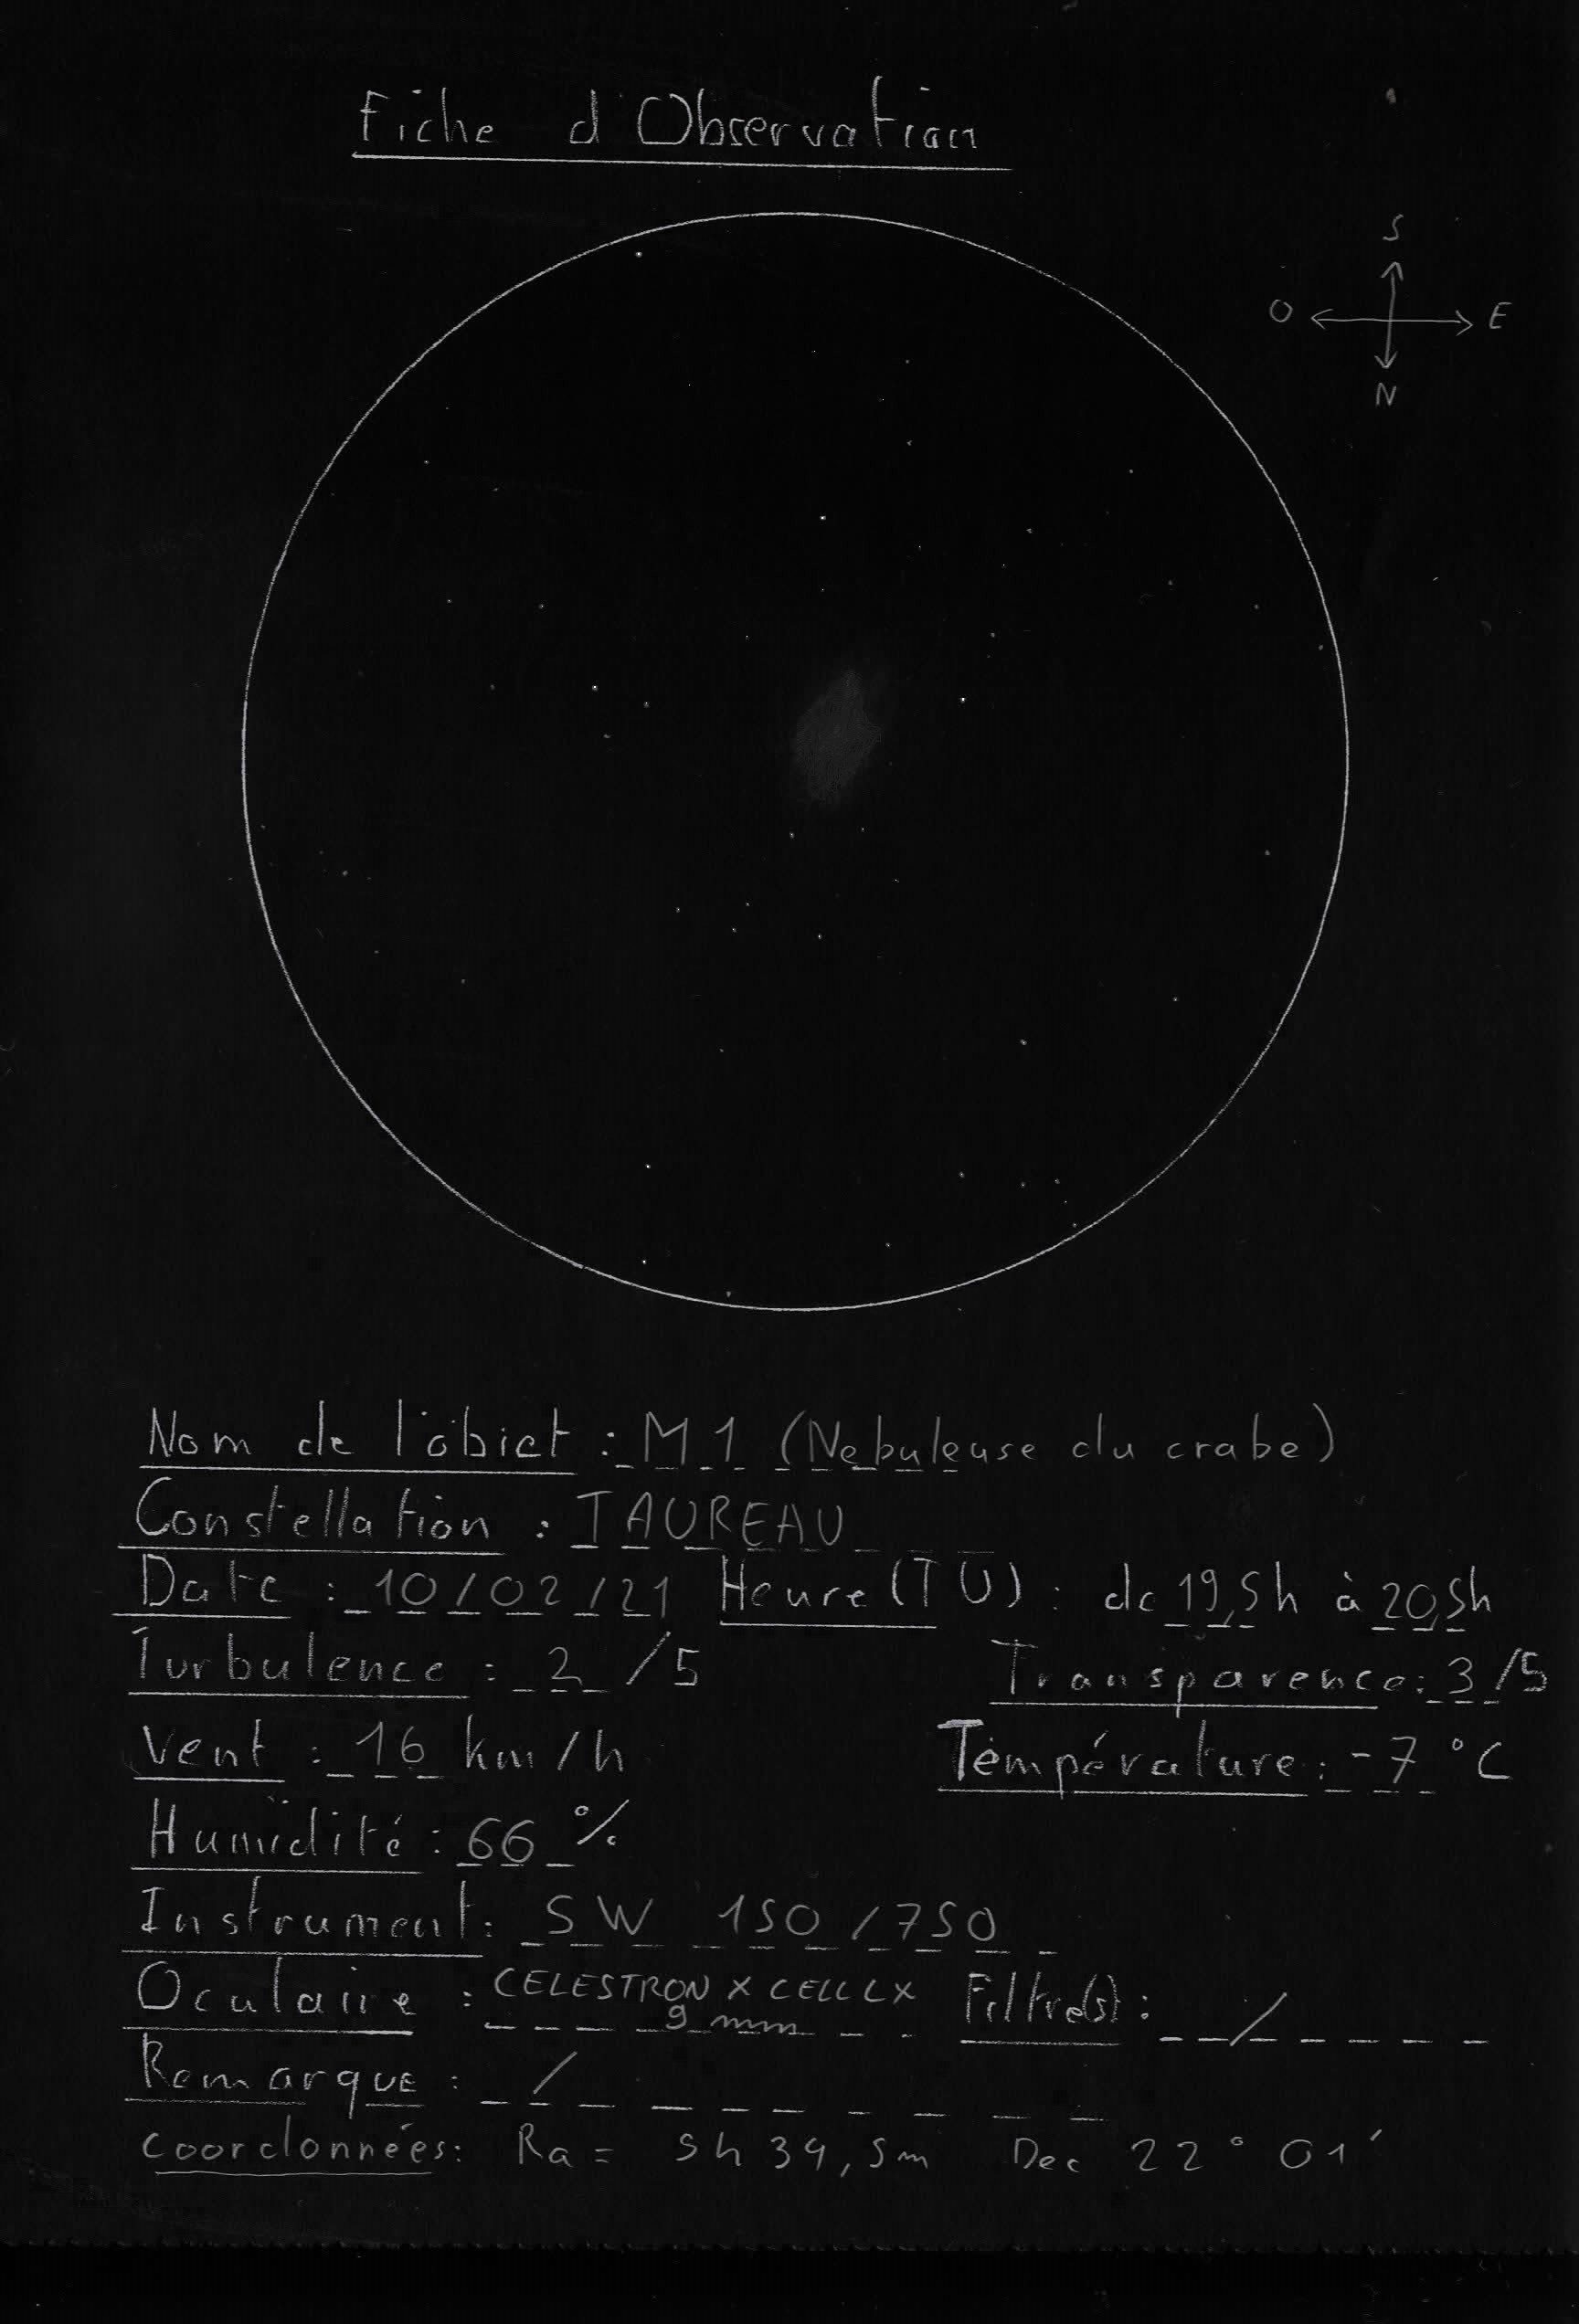 Fiche d'Observation
S
O E
N
Nom de l'objet : M1 (Nebuleuse du crabe)
Constellation : TAUREAU
Date : 10/02/21 Heure (TU) : de 19,5h à 20,5h
Turbulence : 2 /5 Transparence : 3 /5
Vent : 16 km/h Température : -7 °C
Humidité : 66 %
Instrument : SW 150/750
Oculaire : CELESTRON X CELL LX Filtre(s) : /
9 mm
Remarque : /
coordonnées : Ra = 5h 34,5m Dec 22° 01'